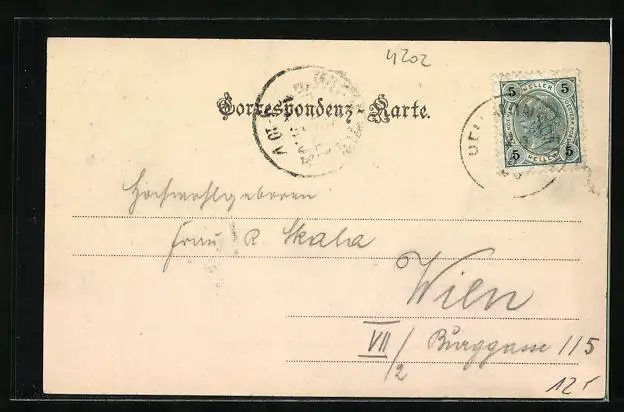 4202
Correspondenz-Karte.
5 HELLER 5
5 HELLER 5
Hochwohlgeboren
Frau R. Skala
Wien
VII/2 Burggasse 115
12